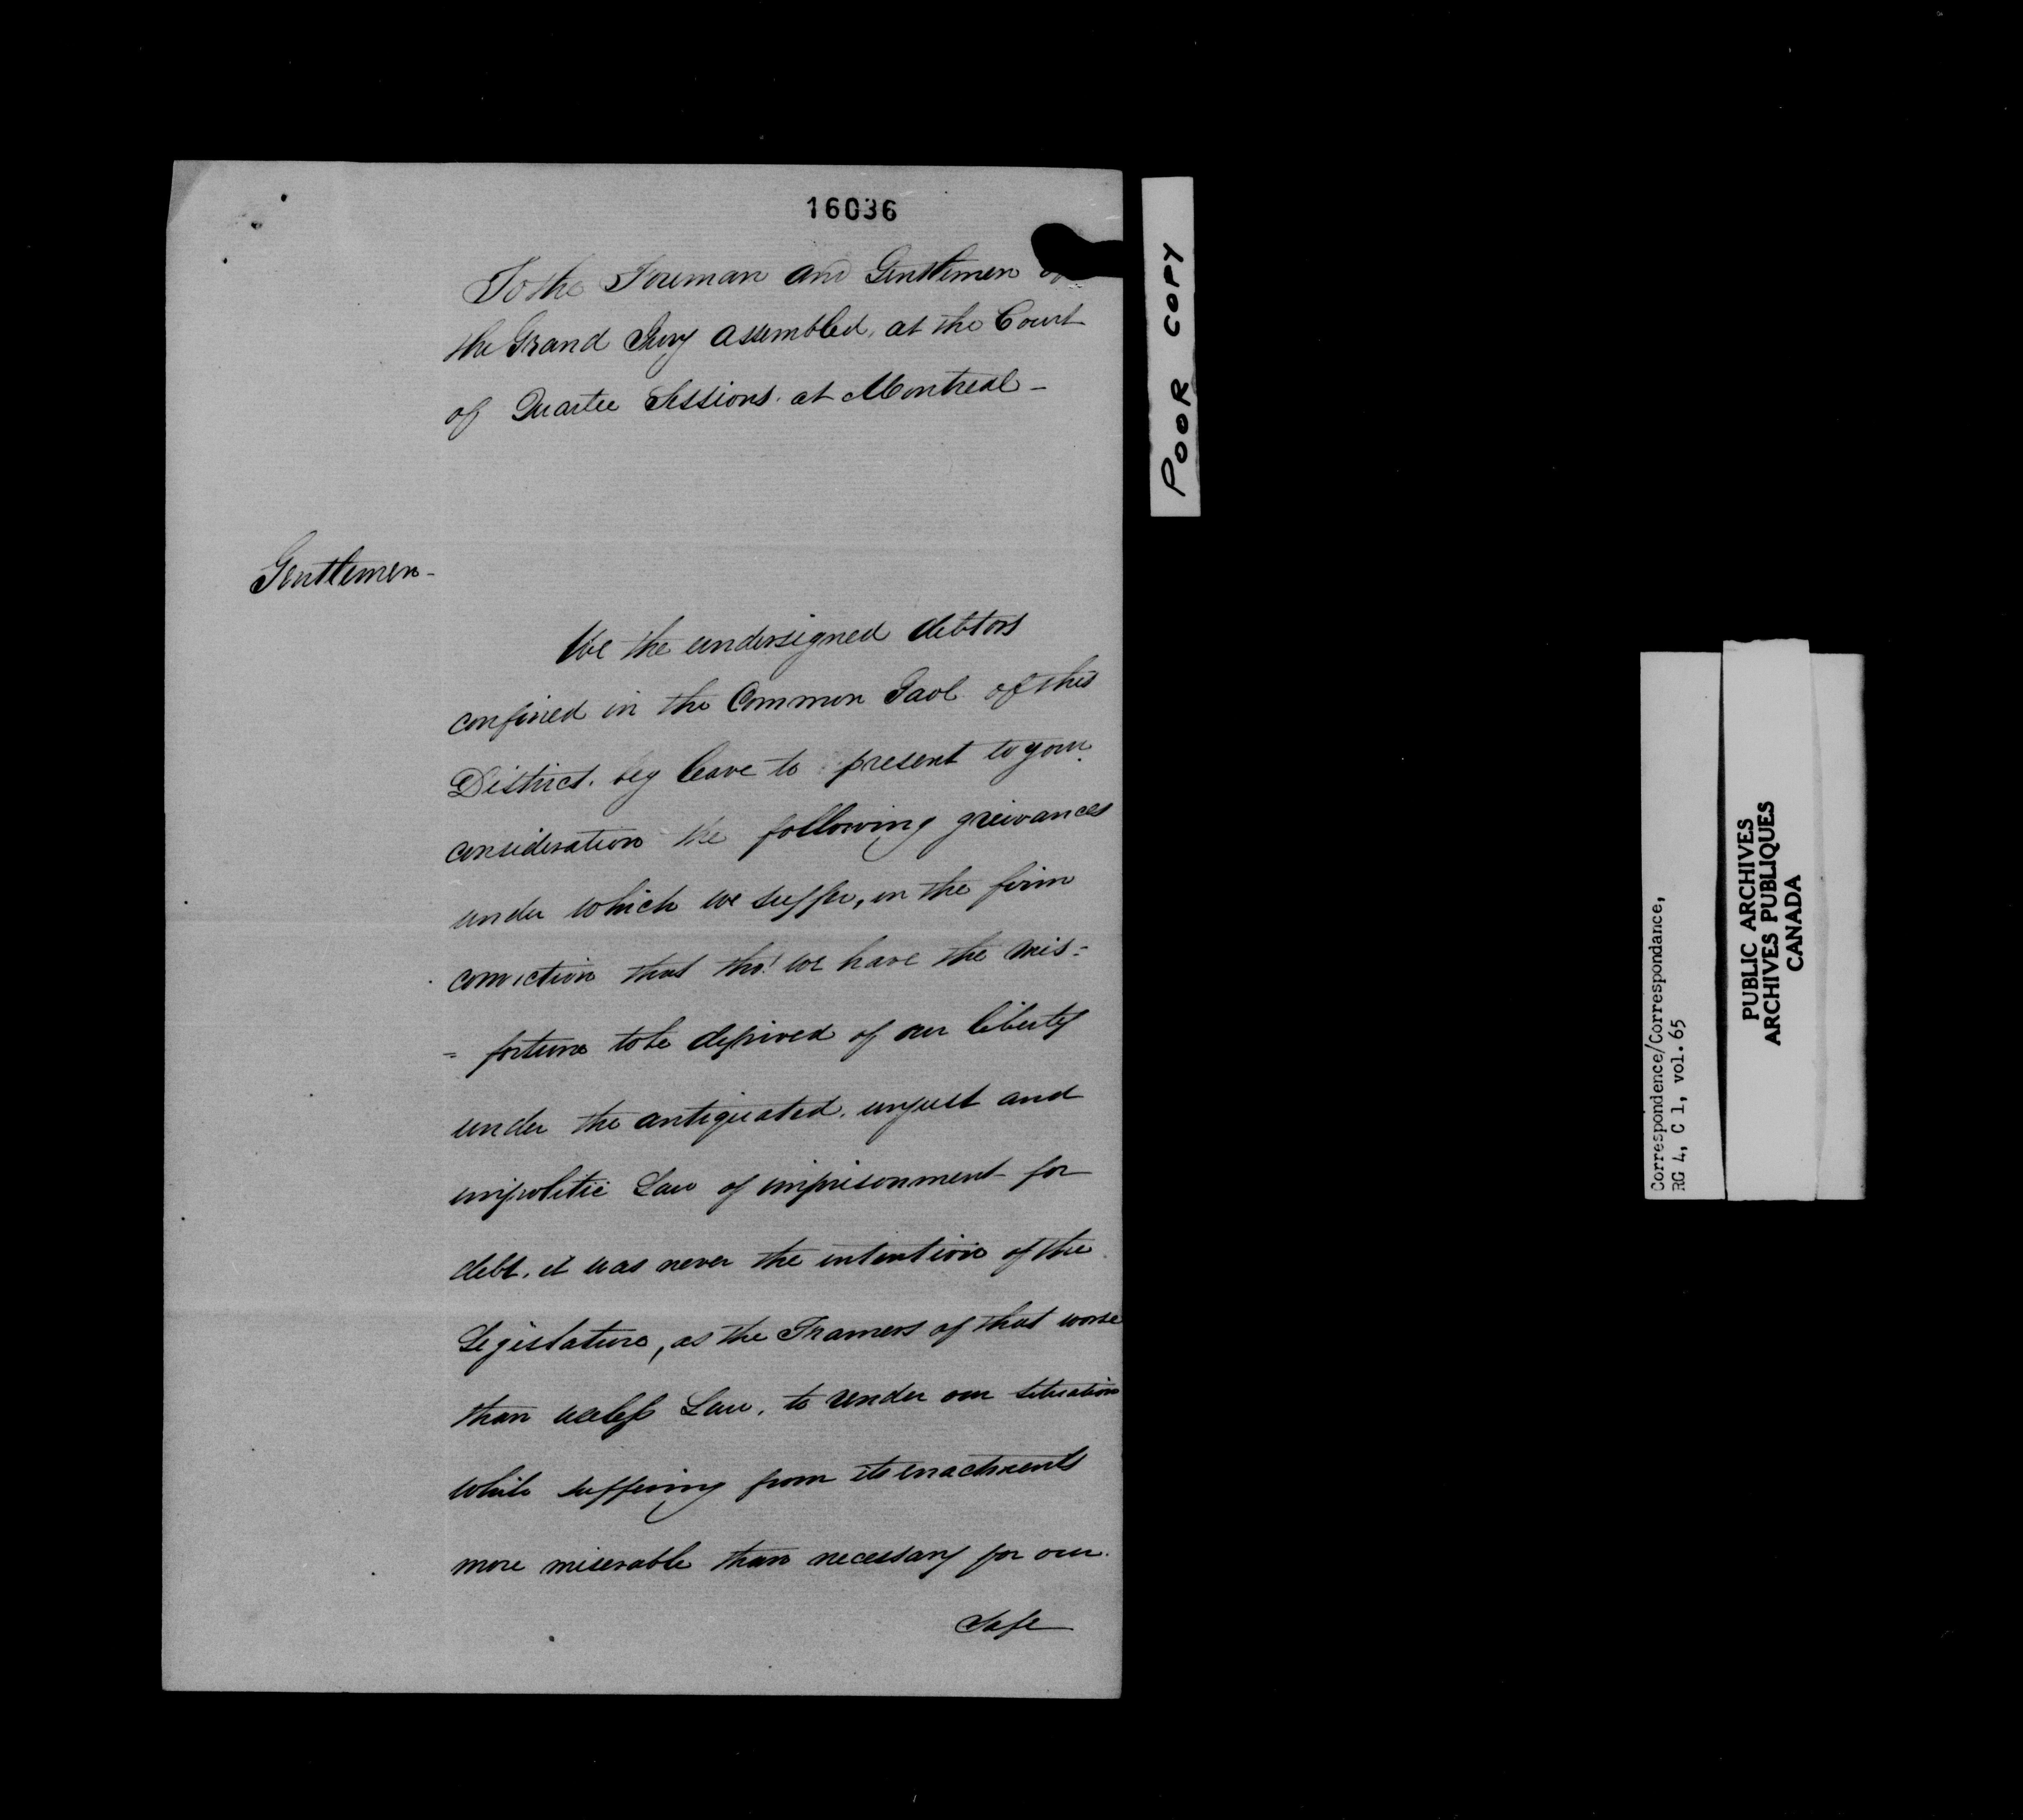 16036
To the Foreman and Gentlemen of
the Grand Jury assembled, at the Court
of Quarter Sessions. at Montreal -
Gentlemen -
We the undersigned debtors
confined in the Common Gaol of this
District. beg leave to present to your
consideration the following grievances
under which we suffer, in the firm
conviction that tho' we have the mis=
= fortune to be deprived of our liberty
under the antiquated. unjust and
impolitic Law of imprisonment for
debt. it was never the intention of the
Legislature, as the Framers of that worse
than useless Law. to render our situation
while suffering from its enactments
more miserable than necessary for our
Safe
POOR COPY
Correspondence/Correspondance,
RG 4, C 1, vol. 65
PUBLIC ARCHIVES
ARCHIVES PUBLIQUES
CANADA